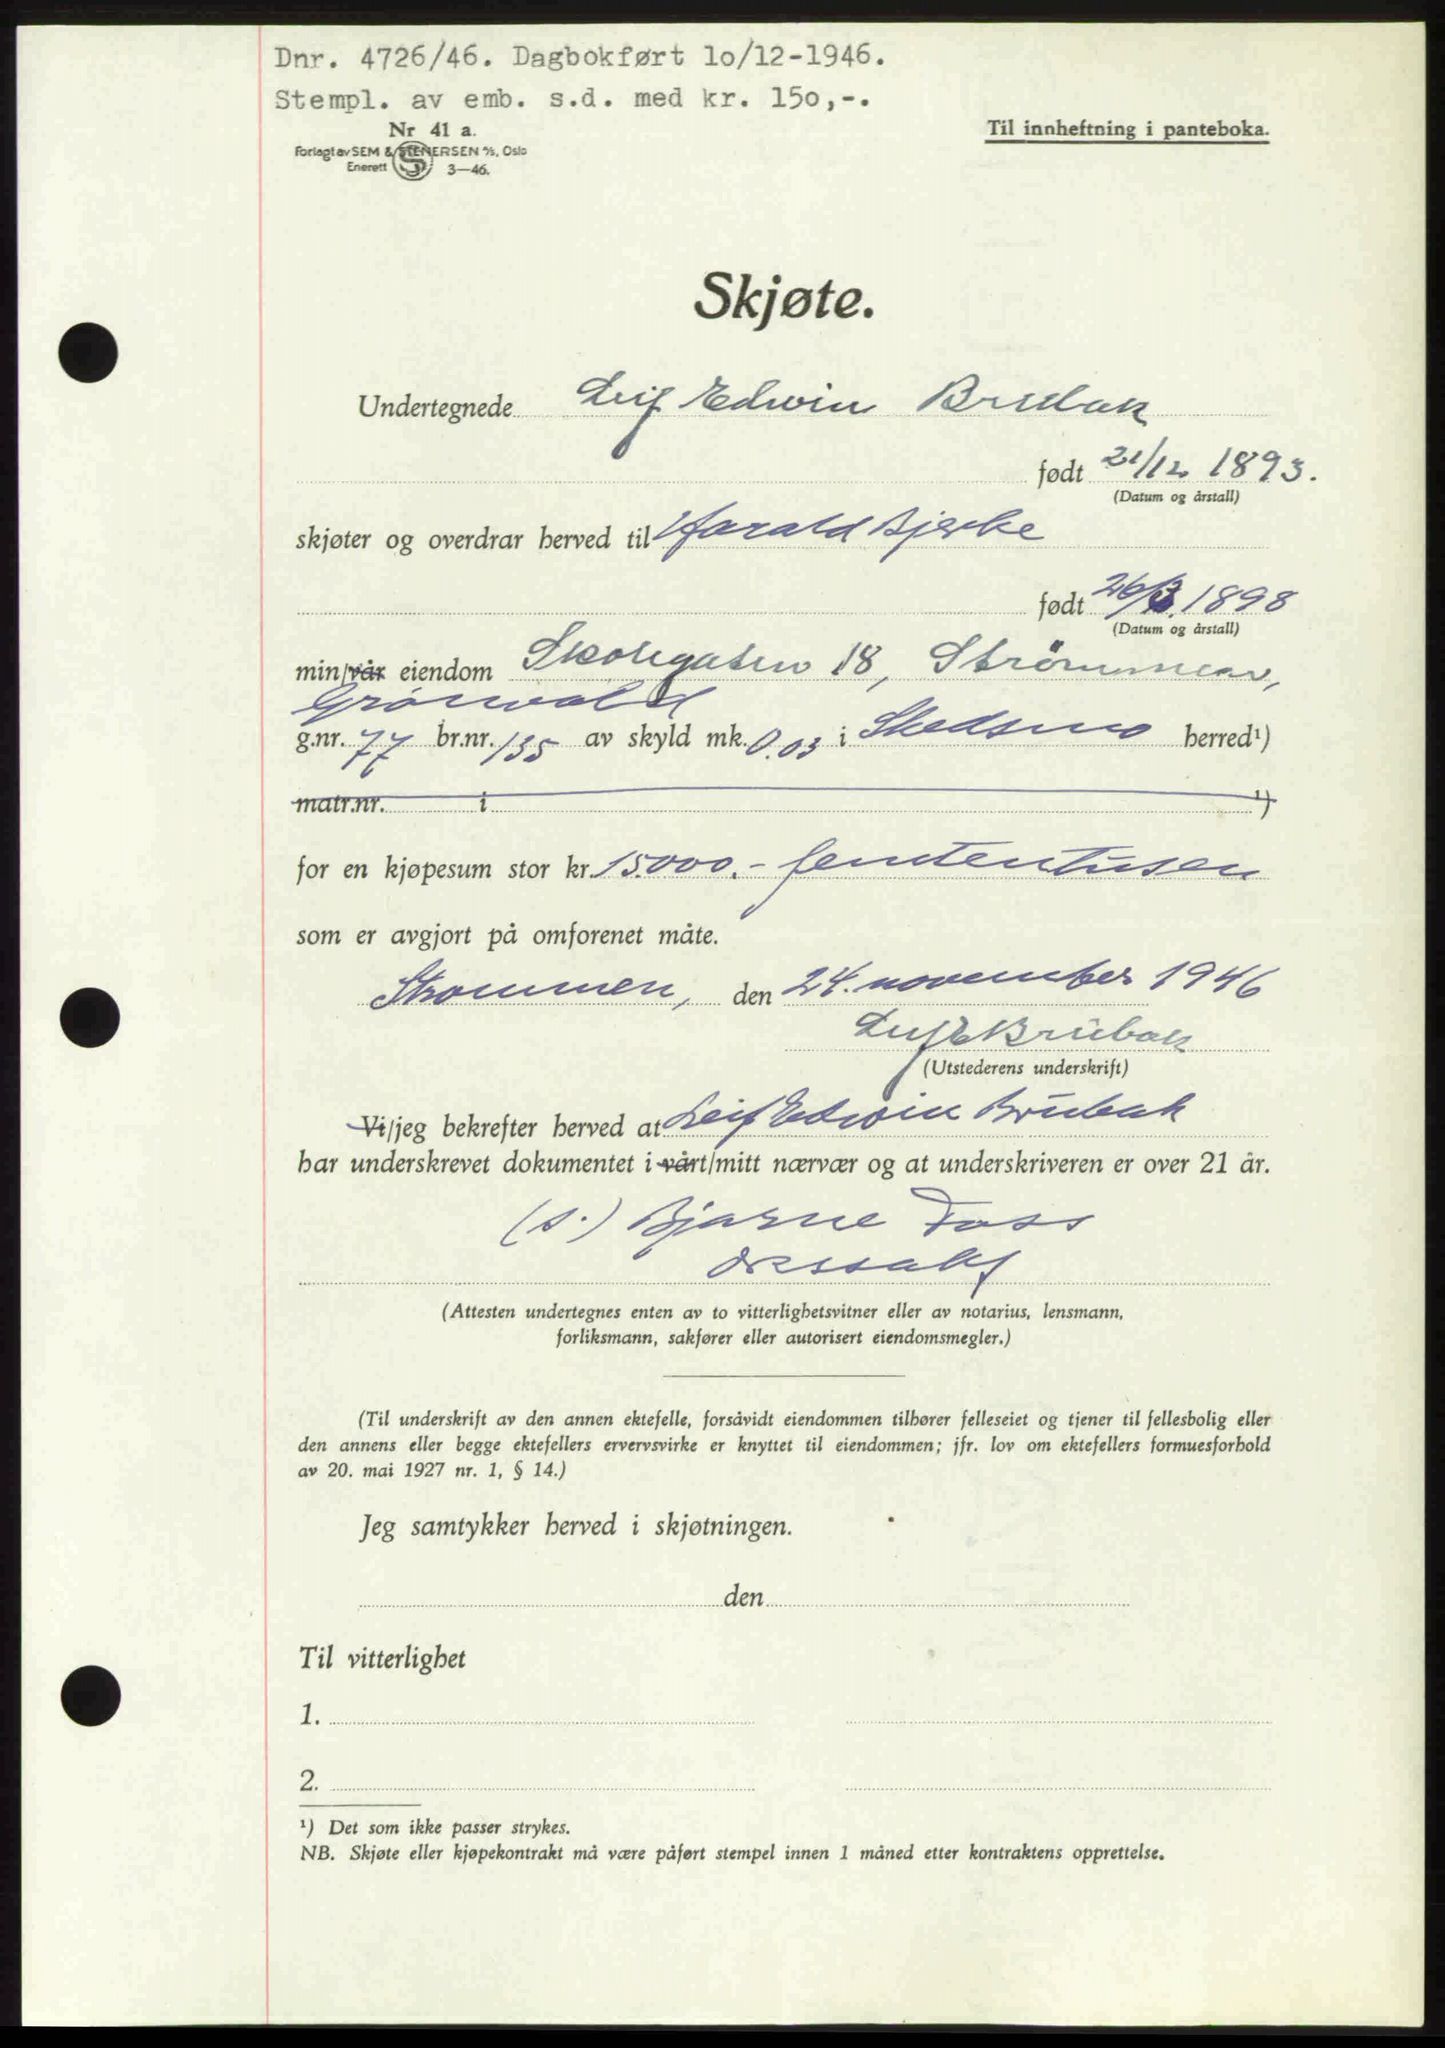 Dnr. 4726/46. Dagbokført 10/12-1946.
Stempl. av emb. s.d. med kr. 150,-.
Nr 41 a.
Forlagt av SEM & STENERSEN A/S, Oslo
Enerett S 3—46.
Til innheftning i panteboka.
Skjøte.
Undertegnede Leif Edwin Brubak
født 21/12 1893.
(Datum og årstall)
skjøter og overdrar herved til Harald Bjerke
født 26/3 1898
(Datum og årstall)
min/vår eiendom Skolegaten 18, Strømmen,
Grønvold
g.nr. 77 br.nr. 135 av skyld mk. 0.03 i Skedsmo herred¹)
matr.nr. i ¹)
for en kjøpesum stor kr. 15.000.- femtentusen
som er avgjort på omforenet måte.
Strømmen, den 24. november 1946
Leif E Brubak
(Utstederens underskrift)
Vi/jeg bekrefter herved at Leif Edwin Brubak
har underskrevet dokumentet i vårt/mitt nærvær og at underskriveren er over 21 år.
(s.) Bjarne Foss
(Attesten undertegnes enten av to vitterlighetsvitner eller av notarius, lensmann,
forliksmann, sakfører eller autorisert eiendomsmegler.)
(Til underskrift av den annen ektefelle, forsåvidt eiendommen tilhører felleseiet og tjener til fellesbolig eller
den annens eller begge ektefellers ervervsvirke er knyttet til eiendommen; jfr. lov om ektefellers formuesforhold
av 20. mai 1927 nr. 1, § 14.)
Jeg samtykker herved i skjøtningen.
den
Til vitterlighet
1.
2.
¹) Det som ikke passer strykes.
NB. Skjøte eller kjøpekontrakt må være påført stempel innen 1 måned etter kontraktens opprettelse.